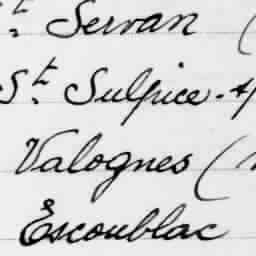 St. Servan (
St. Sulpice-
Valognes (
Escoublac